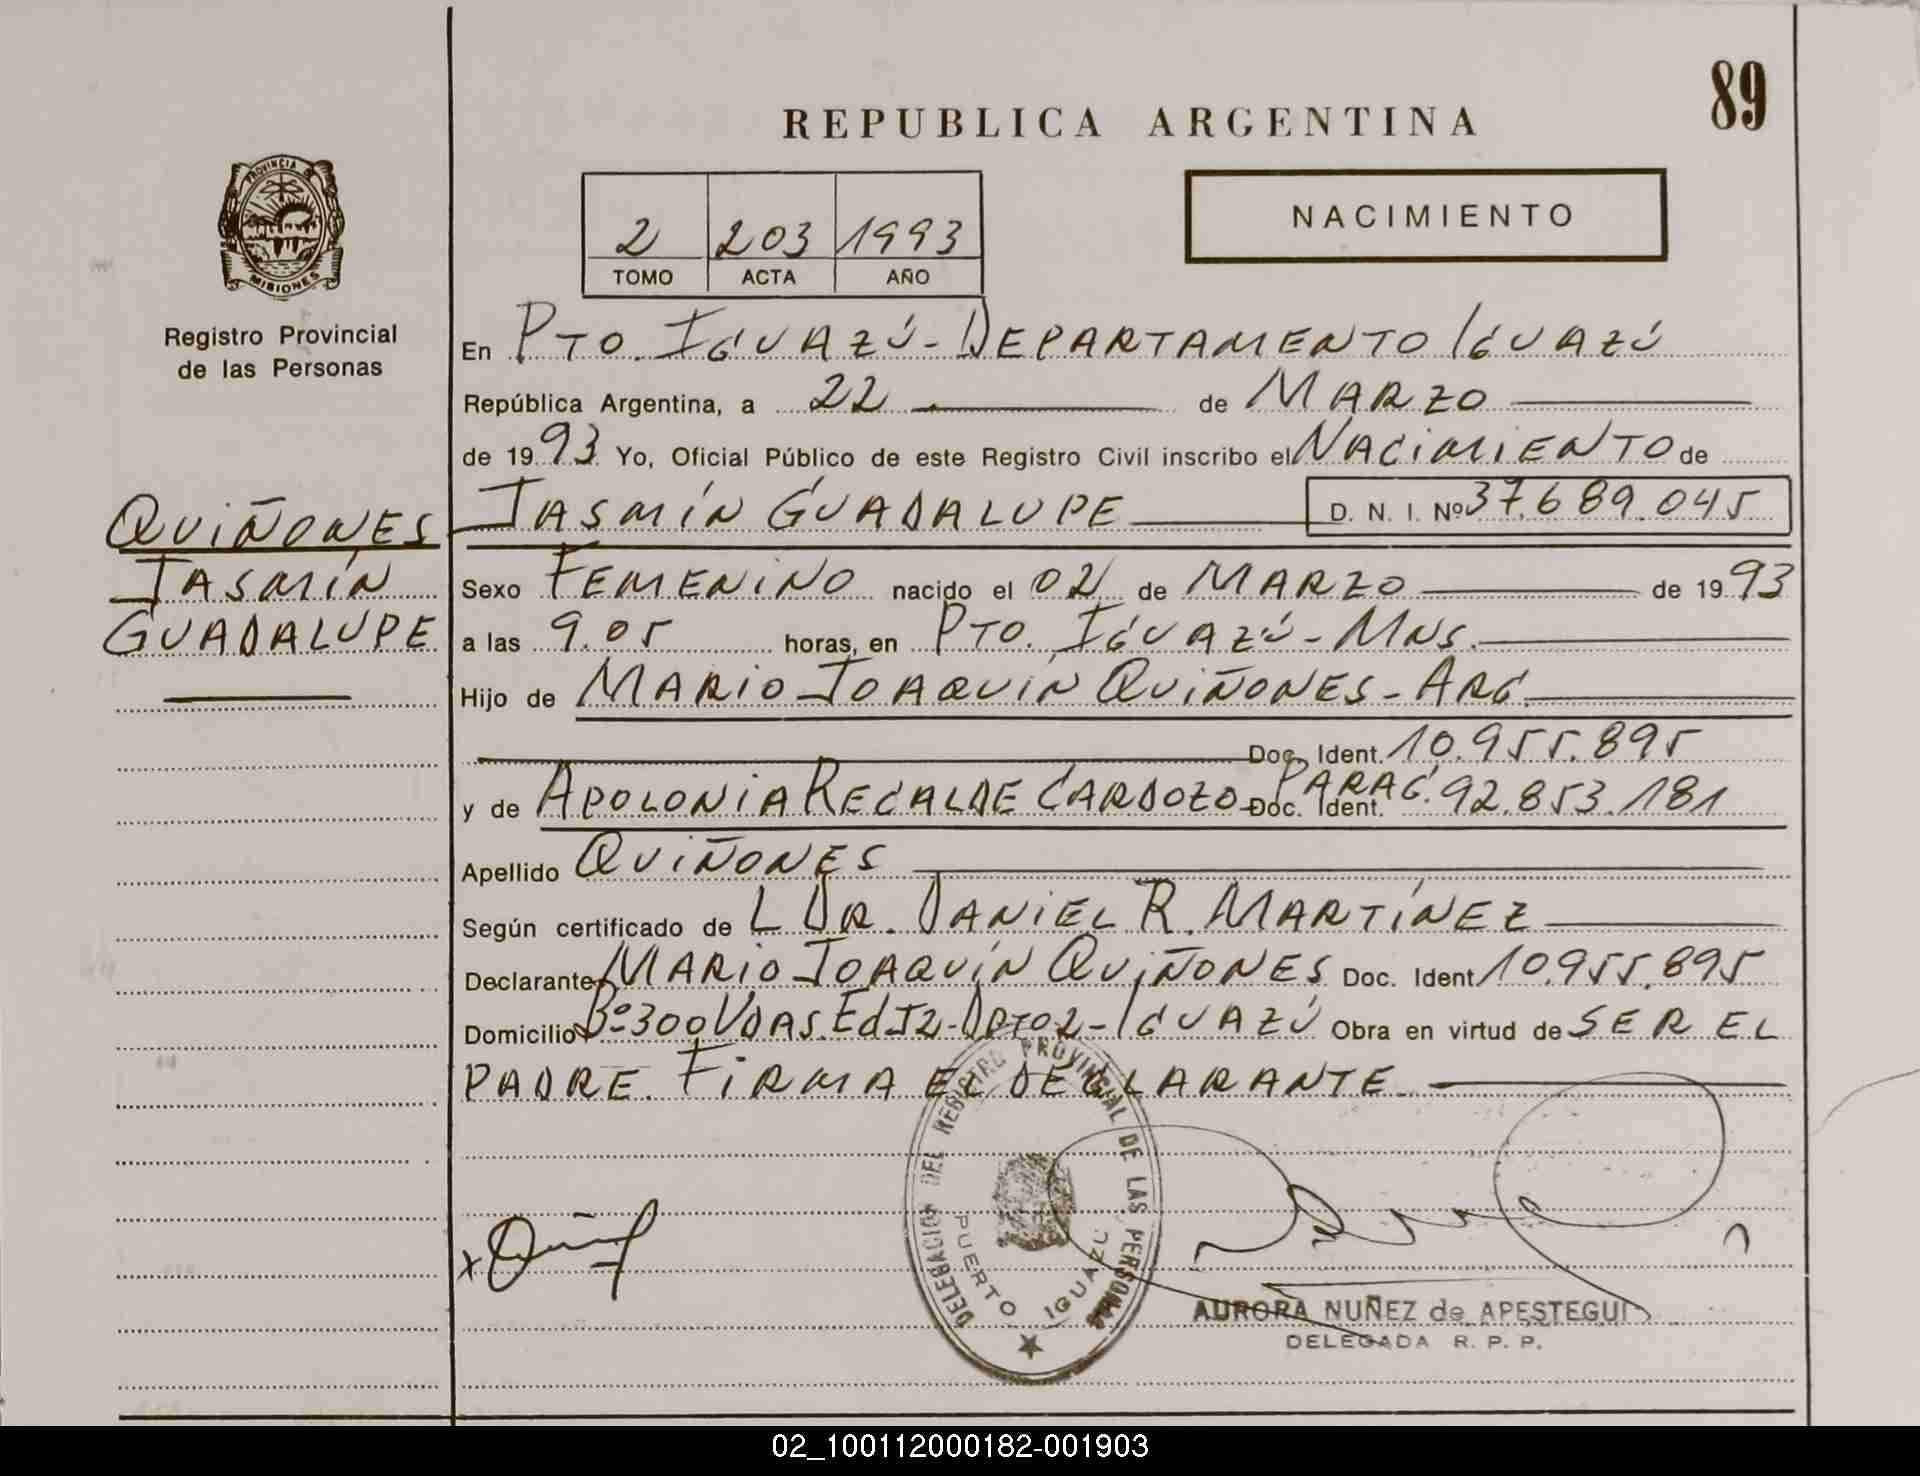 89
REPUBLICA ARGENTINA
PROVINCIA DE
MISIONES
Registro Provincial
de las Personas
2 203 1993
TOMO ACTA AÑO
NACIMIENTO
En PTO. IGUAZÚ - DEPARTAMENTO IGUAZÚ
República Argentina, a 22 de MARZO
de 1993 Yo, Oficial Público de este Registro Civil inscribo el NACIMIENTO de
JASMÍN GUADALUPE D. N. I. Nº 37.689.045
QUIÑONES
JASMÍN
GUADALUPE
Sexo FEMENINO nacido el 02 de MARZO de 1993
a las 9.05 horas, en PTO. IGUAZÚ - MNS.
Hijo de MARIO JOAQUÍN QUIÑONES - ARG.
Doc. Ident. 10.955.895
y de APOLONIA RECALDE CARDOZO - PARAG. Doc. Ident. 92.853.181
Apellido QUIÑONES
Según certificado de L DR. DANIEL R. MARTÍNEZ
Declarante MARIO JOAQUÍN QUIÑONES Doc. Ident 10.955.895
Domicilio Bº 300 VDAS. Ed J2 - DPTO 2 - IGUAZÚ Obra en virtud de SER EL
PADRE. FIRMA EL DECLARANTE
DELEGACION DEL REGISTRO PROVINCIAL DE LAS PERSONAS
PUERTO IGUAZU
AURORA NUÑEZ de APESTEGUI
DELEGADA R. P. P.
02_100112000182-001903